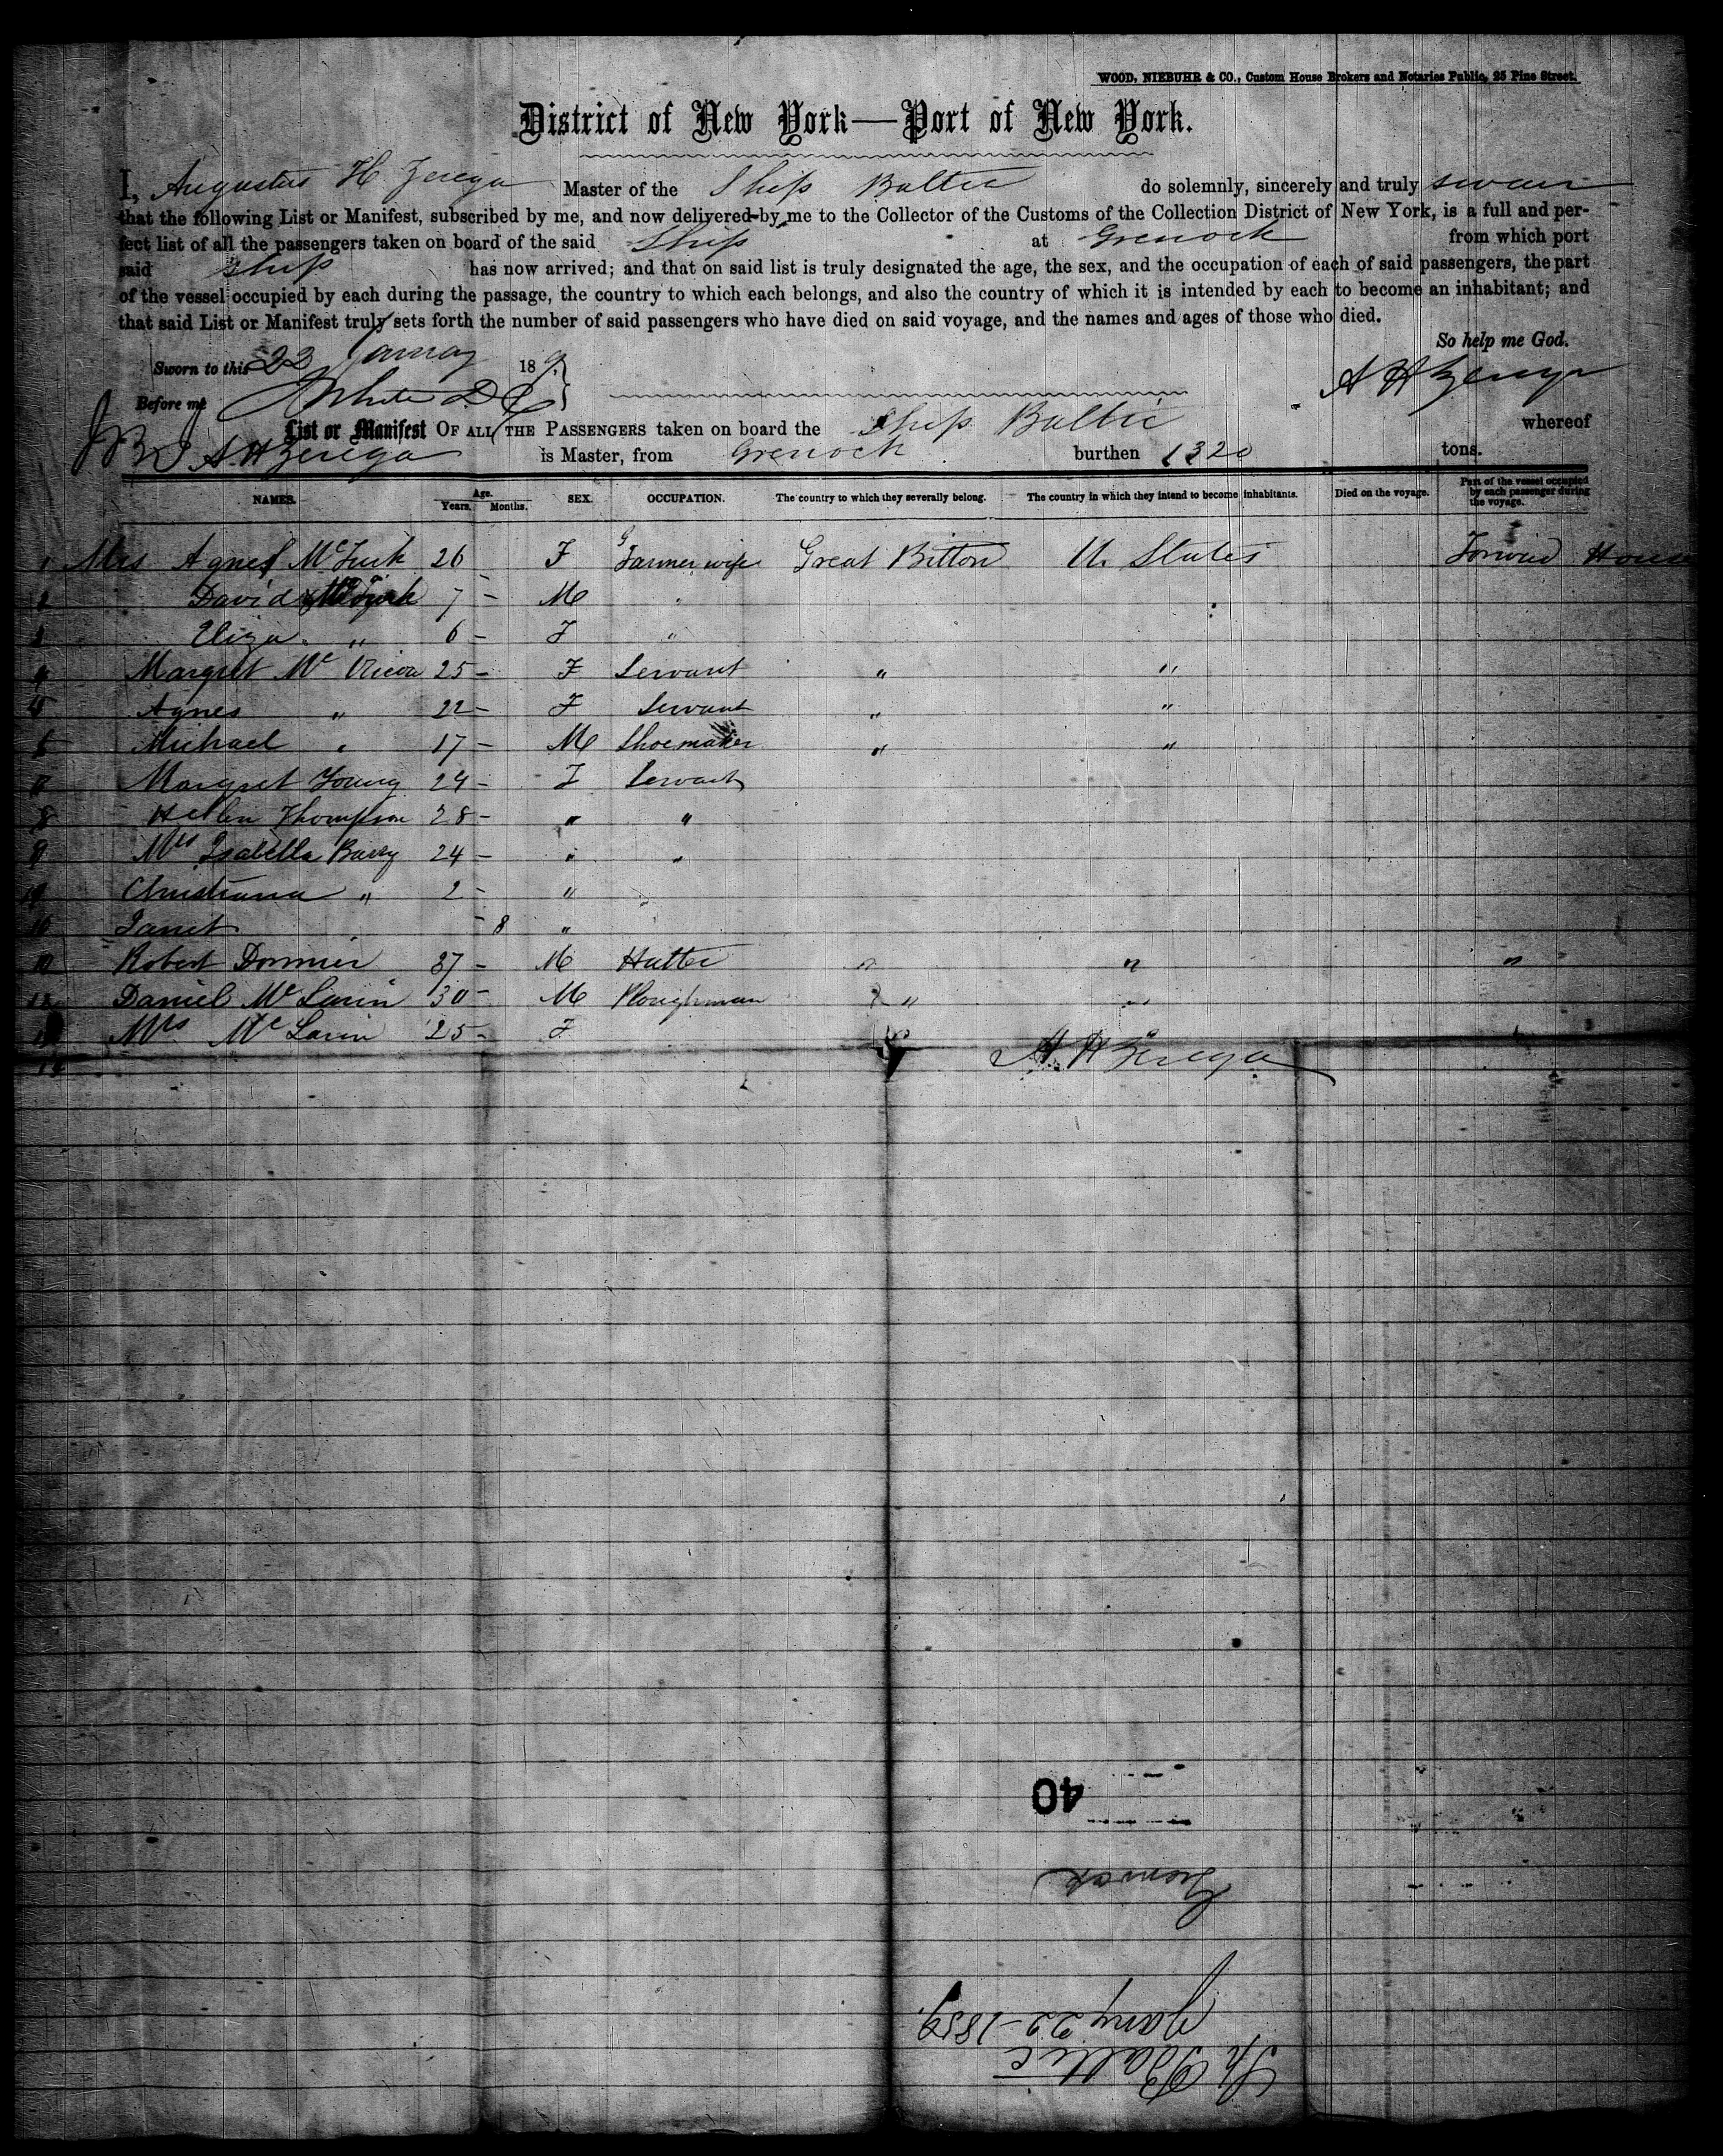 WOOD, NIEBUHR & CO., Custom House Brokers and Notaries Public, 25 Pine Street.
District of New York—Port of New York.
I, Augustus H Zerega Master of the Ship Baltic do solemnly, sincerely and truly swear
that the following List or Manifest, subscribed by me, and now delivered by me to the Collector of the Customs of the Collection District of New York, is a full and per-
fect list of all the passengers taken on board of the said Ship at Grenock from which port
said ship has now arrived; and that on said list is truly designated the age, the sex, and the occupation of each of said passengers, the part
of the vessel occupied by each during the passage, the country to which each belongs, and also the country of which it is intended by each to become an inhabitant; and
that said List or Manifest truly sets forth the number of said passengers who have died on said voyage, and the names and ages of those who died.
So help me God.
Sworn to this 22 January 189
A H Zerega
Before me
List or Manifest OF ALL THE PASSENGERS taken on board the Ship Baltic whereof
A. H Zerega is Master, from Grenock burthen 1320 tons.
NAMES. Age. Years. Months. SEX. OCCUPATION. The country to which they severally belong. The country in which they intend to become inhabitants. Died on the voyage. Part of the vessel occupied by each passenger during the voyage.
1 Mrs Agnes 26 F Farmer wife Great Bitton U. States Forwird House
2 David 7 - M
3 Eliza " 6 - F "
4 Margret Mc 25 - F Servant " "
5 Agnes " 22 - F Servant " "
6 Michael " 17 - M Shoemaker " "
7 Margret Young 24 - F Servant
8 Hellen Thompson 28 - " "
9 Mrs Isabella Barry 24 - " "
10 Christiana " 2 - "
Janet - 8 "
Robert Dormier 37 - M Hatter " " "
Daniel Mc Larin 30 - M Ploughman " "
Mrs Mc Larin 25 - F
A. H Zerega
40
Grenock
Jany 22 - 1859.
Sh Baltic